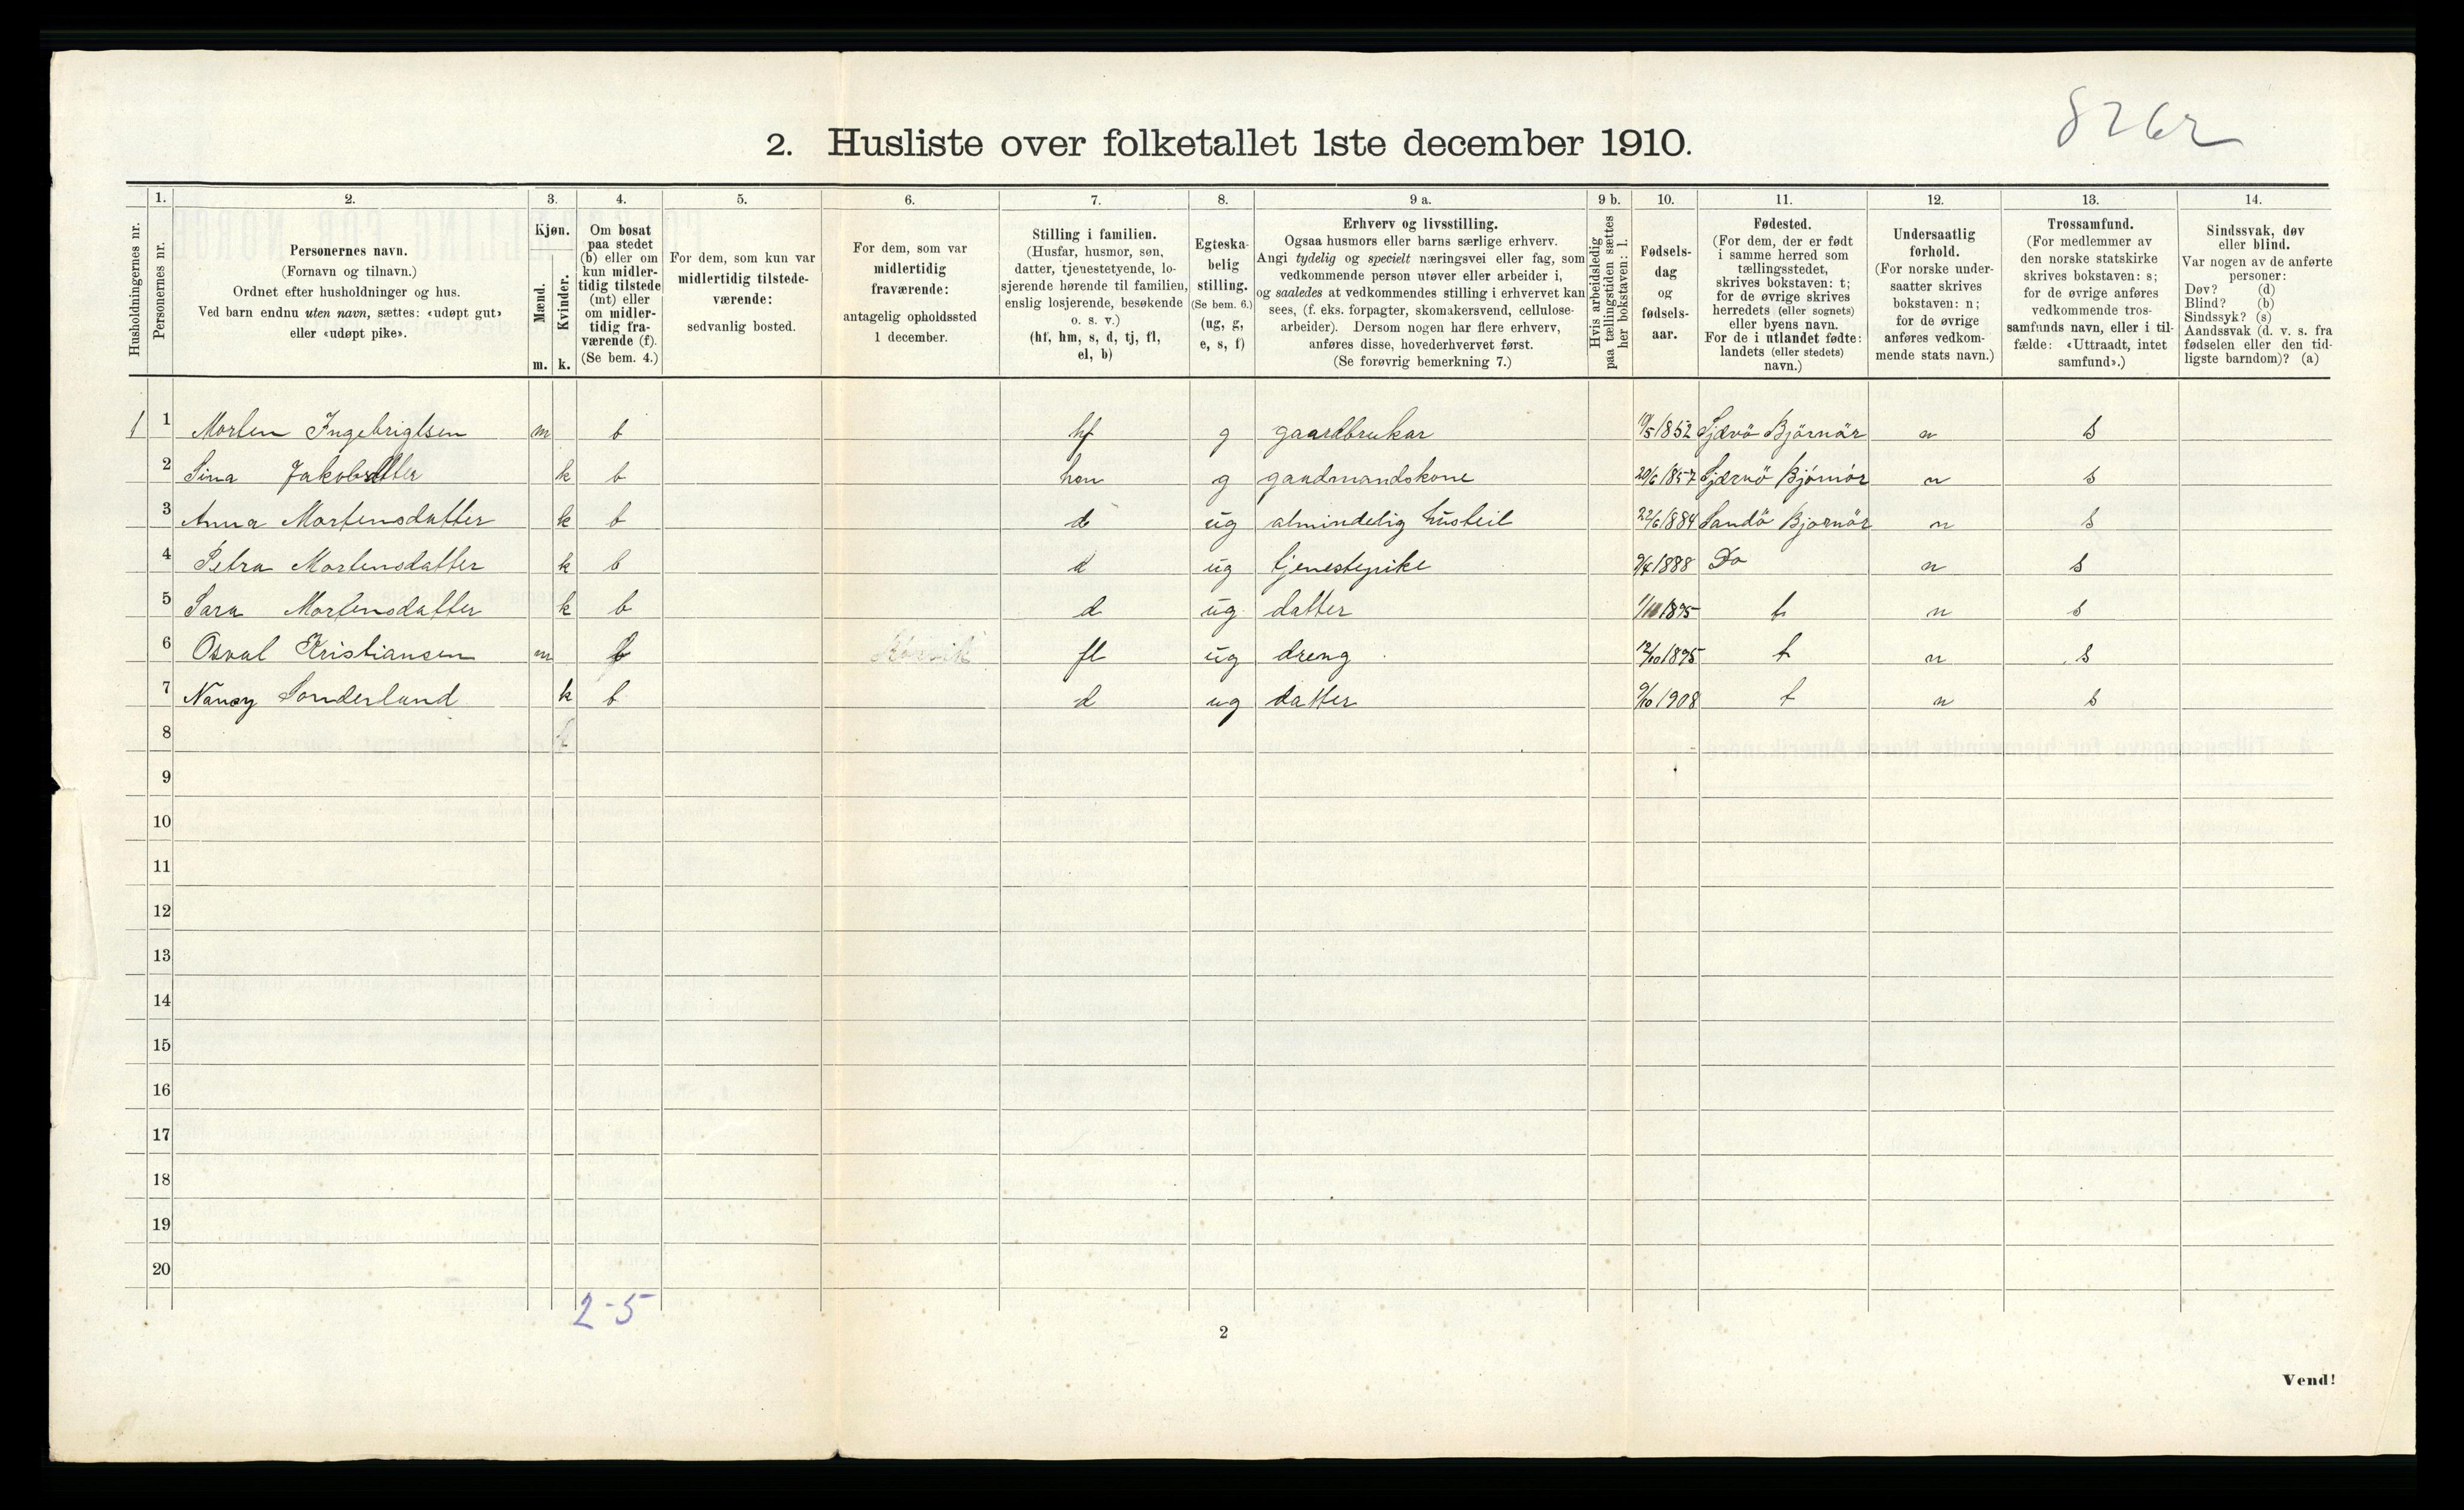 8262
2. Husliste over folketallet 1ste december 1910.
Husholdningernes nr.
1.
Personernes nr.
2.
Personernes navn.
(Fornavn og tilnavn.)
Ordnet efter husholdninger og hus.
Ved barn endnu uten navn, sættes: «udøpt gut»
eller «udøpt pike».
3.
Kjøn.
Mænd.
Kvinder.
m. k.
4.
Om bosat
paa stedet
(b) eller om
kun midler-
tidig tilstede
(mt) eller
om midler-
tidig fra-
værende (f).
(Se bem. 4.)
5.
For dem, som kun var
midlertidig tilstede-
værende:
sedvanlig bosted.
6.
For dem, som var
midlertidig
fraværende:
antagelig opholdssted
1 december.
7.
Stilling i familien.
(Husfar, husmor, søn,
datter, tjenestetyende, lo-
sjerende hørende til familien,
enslig losjerende, besøkende
o. s. v.)
(hf, hm, s, d, tj, fl,
el, b)
8.
Egteska-
belig
stilling.
(Se bem. 6.)
(ug, g,
e, s, f)
9 a.
Erhverv og livsstilling.
Ogsaa husmors eller barns særlige erhverv.
Angi tydelig og specielt næringsvei eller fag, som
vedkommende person utøver eller arbeider i,
og saaledes at vedkommendes stilling i erhvervet kan
sees, (f. eks. forpagter, skomakersvend, cellulose-
arbeider). Dersom nogen har flere erhverv,
anføres disse, hovederhvervet først.
(Se forøvrig bemerkning 7.)
9 b.
Hvis arbeidsledig
paa tællingstiden sættes
her bokstaven: l.
10.
Fødsels-
dag
og
fødsels-
aar.
11.
Fødested.
(For dem, der er født
i samme herred som
tællingsstedet,
skrives bokstaven: t;
for de øvrige skrives
herredets (eller sognets)
eller byens navn.
For de i utlandet fødte:
landets (eller stedets)
navn.)
12.
Undersaatlig
forhold.
(For norske under-
saatter skrives
bokstaven: n;
for de øvrige
anføres vedkom-
mende stats navn.)
13.
Trossamfund.
(For medlemmer av
den norske statskirke
skrives bokstaven: s;
for de øvrige anføres
vedkommende tros-
samfunds navn, eller i til-
fælde: «Uttraadt, intet
samfund».)
14.
Sindssvak, døv
eller blind.
Var nogen av de anførte
personer:
Døv? (d)
Blind? (b)
Sindssyk? (s)
Aandssvak (d. v. s. fra
fødselen eller den tid-
ligste barndom)? (a)
1 1 Morten Ingebrigtsen m b hf g gaardbrukar 1852 Bjørnör n s
2 Sina Jakobsdtter k b hm g gaardmandskone 20/6 1857 Bjørnör n s
3 Anna Mortensdatter k b d ug almindelig husteil 22/6 1884 Sandö Bjørnör n s
4 Petra Mortensdatter k b d ug tjenestepike 1888 Do n s
5 Sara Mortensdatter k b d ug datter 1895 t n s
6 Osval Kristiansen m b fl ug dreng 12/10 1895 t n s
7 Nancy Sonderland k b d ug datter 9/10 1908 t n s
8
9
10
11
12
13
14
15
16
17
18
19
20
2-5
2
Vend!